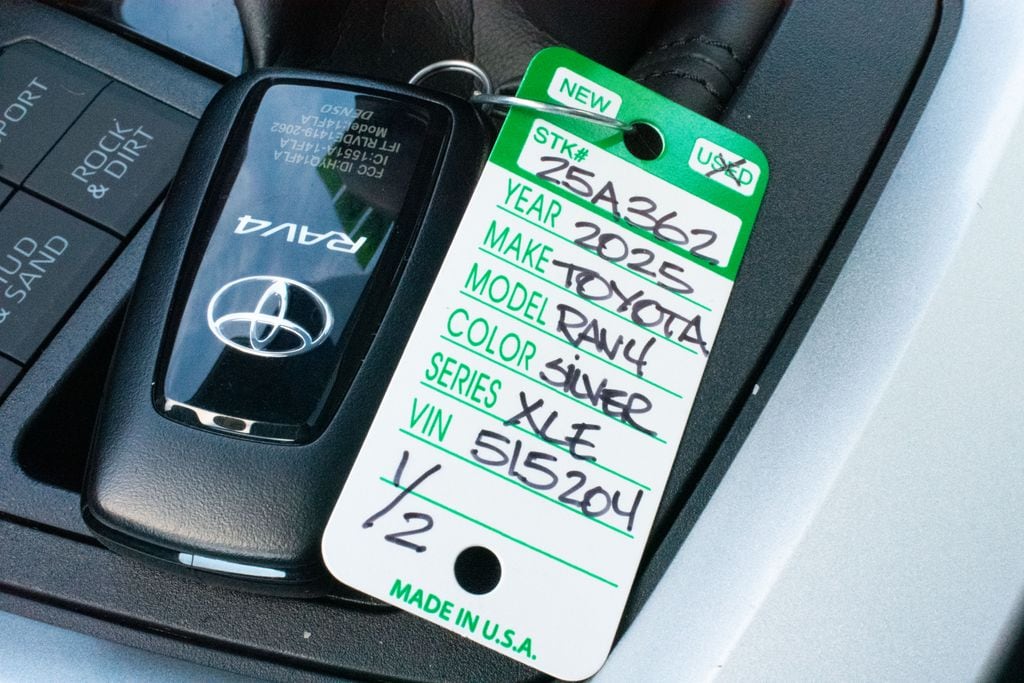 ROCK
& DIRT
& SAND
FCC ID:HYQ14FLA
IC:1551A-14FLA
IFT RLVDE1419-2062
Model:14FLA
DENSO
RAV4
NEW
USED
STK# 25A362
YEAR 2025
MAKE TOYOTA
MODEL RAV4
COLOR SILVER
SERIES XLE
VIN 515204
1/2
MADE IN U.S.A.